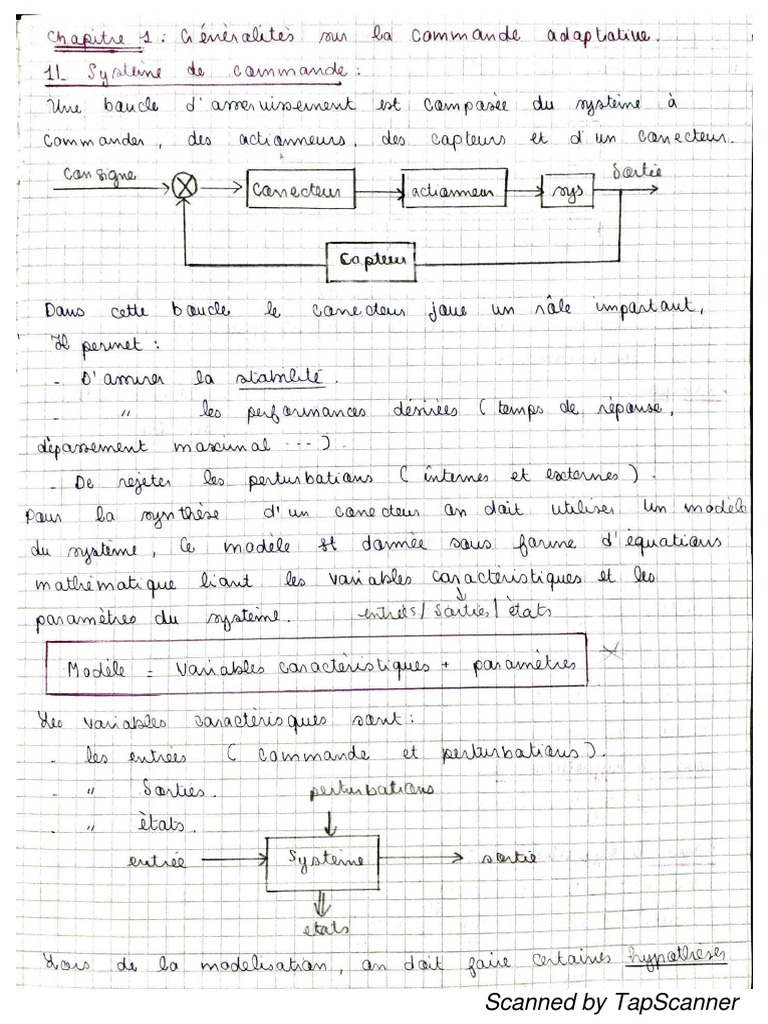 Chapitre 1 : Généralités sur la commande adaptative.
1I_ Système de commande :
Une boucle d'asservissement est composée du système à
commander, des actionneurs, des capteurs et d'un correcteur.
Consigne
Sortie
Correcteur
actionneur
sys
Capteur
Dans cette boucle le correcteur joue un rôle important,
Il permet :
- D'assurer la stabilité.
- " les performances désirées (temps de réponse,
dépassement maximal ...).
- De rejeter les perturbations (internes et externes).
Pour la synthèse d'un correcteur on doit utiliser un modèle
du système, Ce modèle est donnée sous forme d'équations
mathématique liant les variables caractéristiques et les
paramètres du système. entrées/ Sorties/ états
Modèle = Variables caractéristiques + paramètres
Les variables caractérisques sont :
- les entrées (commande et perturbations).
- " Sorties.
perturbations
- " états.
entrée
Système
sortie
etats
Lors de la modélisation, on doit faire certaines hypothèses
Scanned by TapScanner